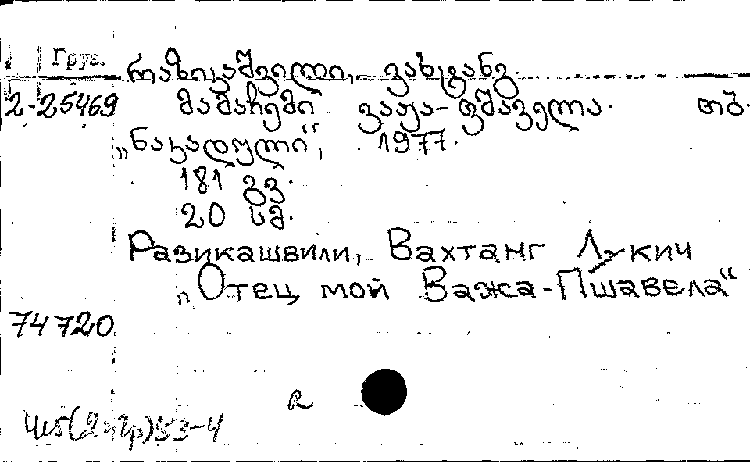 Груз.
რაზიკაშვილი, ვახტანგ
2-25469 მამაჩემი ვაჟა-ფშაველა. თბ.
„ნაკადული“, 1977.
181 გვ.
20 სმ.
Разикашвили, Вахтанг Лукич
„Отец мой Важа-Пшавела“
74720